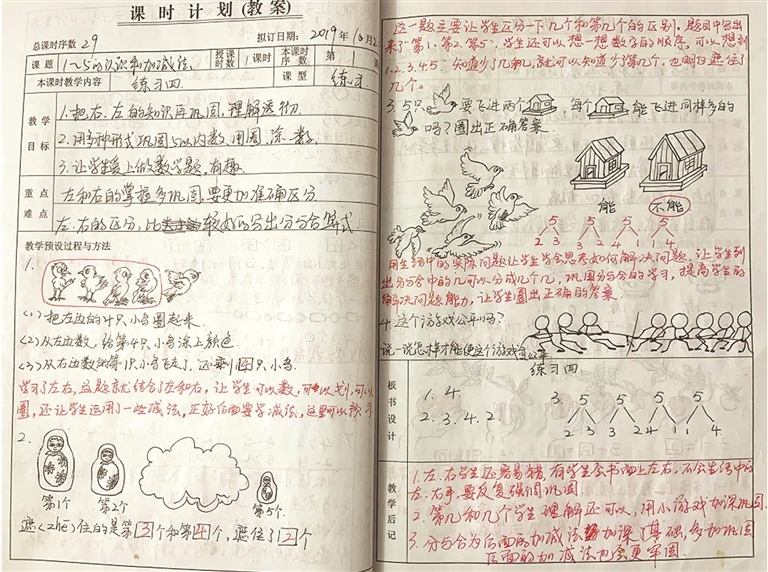 课时计划(教案)
总课时序数 29 拟订日期: 2019年10月2
课题 1~5的认识和加减法 授课时数 1课时 本课时序数 第1
本课时教学内容 练习四 课型 练习
教学目标
1.把右、左的知识再巩固,理解透彻.
2.用多种形式巩固5以内数,用圈、涂、数.
3.让学生爱上做数学题,有趣.
重点难点
左和右的掌握多巩固,要更加准确区分
左、右的区分,比较好的写出分与合算式.
教学预设过程与方法
1.
(1)把左边的4只小鸟圈起来.
(2)从左边数,给第4只小鸟涂上颜色
(3)从右边数的第1只小鸟飞走了,还剩4只小鸟.
学习了左右,这题就结合了左和右,让学生可以数,可以划,可以
圈,还让学生运用了一些减法,正好后面要学减法,这里可以预习
2.
第1个 第2个 第5个.
遮<zhē>住的是第3个和第4个,遮住了2个
这一题主要让学生区分一下几个和第几个的区别,题目中写出
来了"第1、第2、第5",学生还可以想一想数字的顺序,可以想到
1.2.3.4.5 知道少了几和几,就可以知道少第几个,也明白遮住了
几个.
3. 5只 要飞进两个 ,每个 能飞进同样多的
吗?圈出正确答案.
能 不能
5 5 5 5
2 3 3 2 4 1 1 4
用生活中的实际问题让学生学会思考如何解决问题,让学生列
出分与合中的几可以分成几个几,巩固分与合的学习,提高学生的
解决问题能力,让学生圈出正确的答案.
4.这个游戏公平吗?
说一说怎样才能使这个游戏公平
板书设计
练习四
1. 4 3. 5 5 5 5
2. 3. 4. 2. 2 3 3 2 4 1 1 4
教学后记
1.左、右学生还容易错,有学生会书面上左右,不会生活中的
左、右手,要反复强调巩固.
2.第几和几个学生理解还可以,用小游戏加深巩固.
3.分与合为后面的加减法加深了基础,多加巩固
后面的加减法也会更牢固.